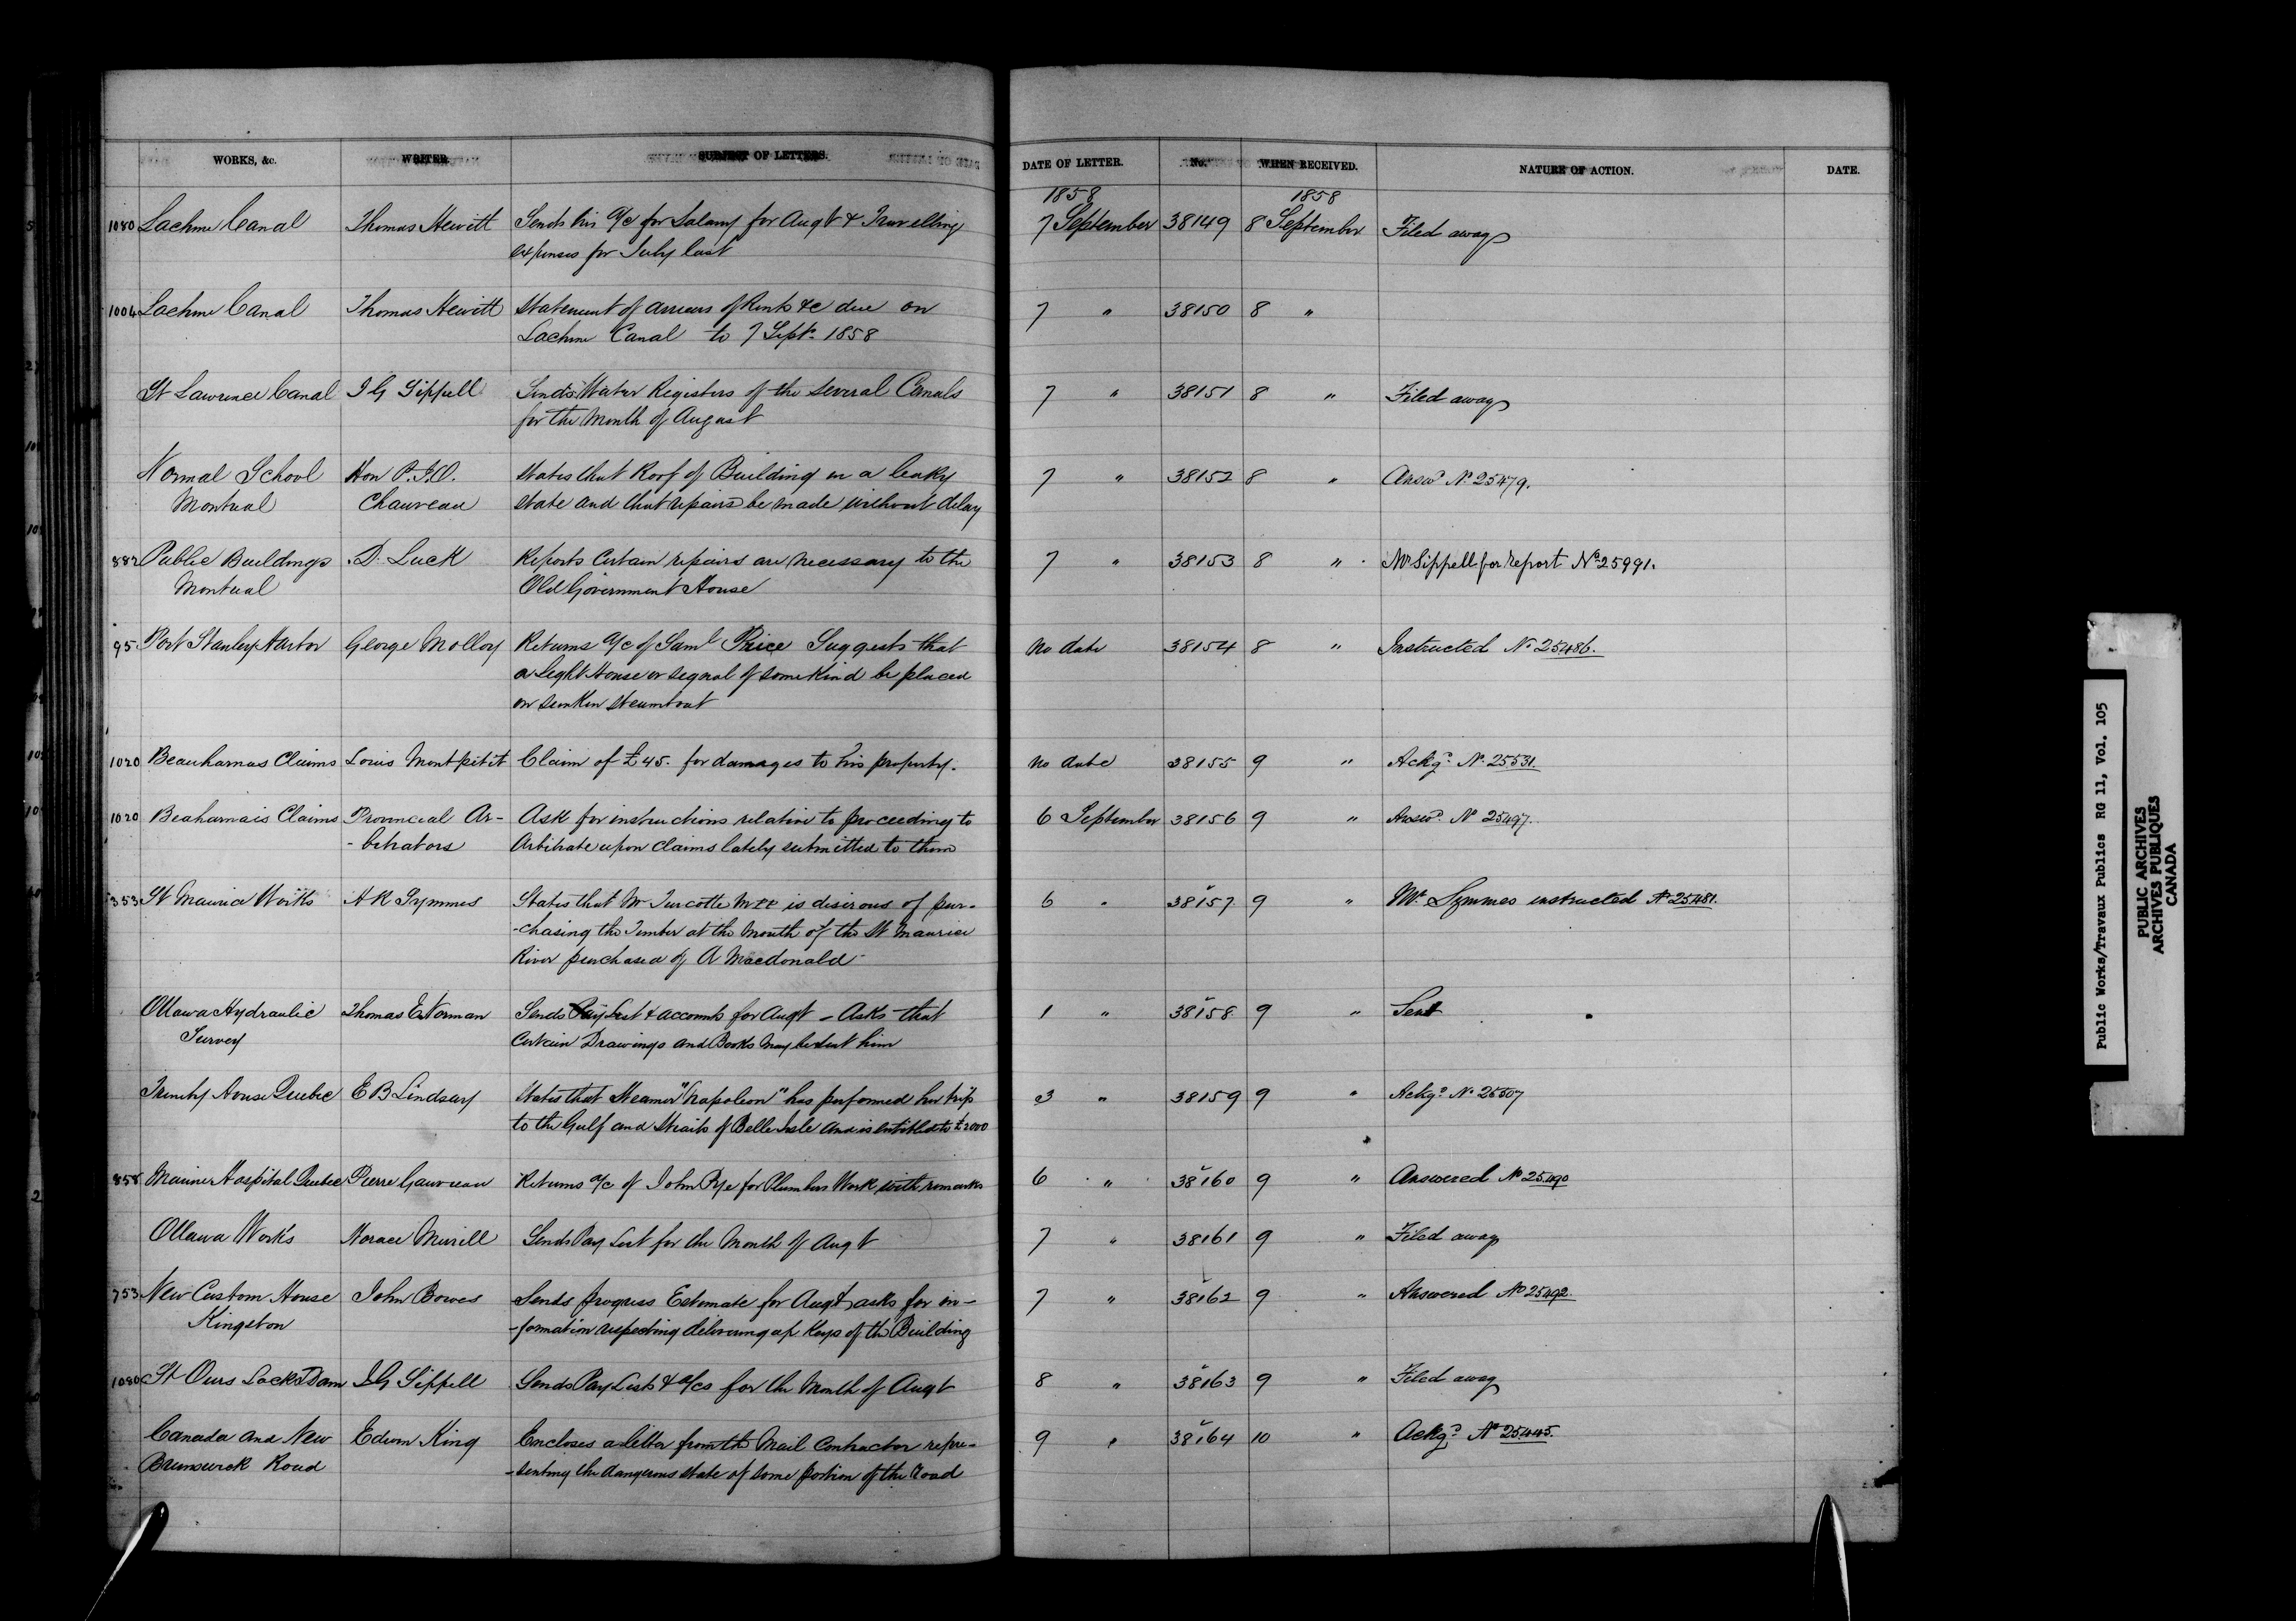 WORKS, &c. WRITER. SUBJECT OF LETTERS. DATE OF LETTER. No. WHEN RECEIVED. NATURE OF ACTION. DATE.
1858 1858
1080 Lachine Canal Thomas Hewitt Sends his a/c for Salary for Augt & Travelling 7 September 38149 8 September Filed away
expenses for July last
1004 Lachine Canal Thomas Hewitt Statement of arrears of Rents &c due on 7 " 38150 8 "
Lachine Canal to 7 Sept. 1858
St Lawrence Canal J G Sippell Sends Water Registers of the several Canals 7 " 38151 8 " Filed away
for the Month of August
Normal School Hon P.J.O. States that Roof of Building in a leaky 7 " 38152 8 " Answd No 25479.
Montreal Chauveau state and that repairs be made without delay
882 Public Buildings D. Luck Reports Certain repairs are necessary to the 7 " 38153 8 " Mr Sippell for report No 25991.
Montreal Old Government House
95 Port Stanley Harbor George Molloy Returns a/c of Saml Price Suggests that No date 38154 8 " Instructed No 25486.
a Light House or signal of some kind be placed
on sunken steamboat
1020 Beauharnais Claims Louis Montpetit Claim of £45. for damages to his property. No date 38155 9 " Ackgd No 25531.
1020 Beaharnais Claims Provincial Ar- Ask for instructions relative to proceeding to 6 September 38156 9 " Answd No 25497.
-bitrators Arbitrate upon claims lately submitted to them
353 St Maurice Works A R Symmes States that Mr Turcotte MPP is desirous of pur- 6 " 38157 9 " Mr Symmes instructed No 25481.
-chasing the Timber at the Mouth of the St Maurice
River purchased of A Macdonald
Ottawa Hydraulic Thomas E Norman Sends Pay List & accounts for Augt - Asks that 1 " 38158 9 " Sent
Survey Certain Drawings and Books may be sent him
Trinity House Quebec E B Lindsay States that Steamer "Napoleon" has performed her trip 3 " 38159 9 " Ackgd No 25507
to the Gulf and Straits of Belle Isle and is entitled to £2000
858 Marine Hospital Quebec Pierre Gauvreau Returns a/c of John Pye for Plumbers Work with remarks 6 " 38160 9 " Answered No 25490
Ottawa Works Horace Merrill Sends Pay List for the Month of Augt 7 " 38161 9 " Filed away
753 New Custom House John Bowes Sends progress Estimate for Augt, asks for in- 7 " 38162 9 " Answered No 25492.
Kingston -formation respecting delivering up Keys of the Building
1080 St Ours Lock & Dam J G Sippell Sends Pay Lists & a/cs for the Month of Augt 8 " 38163 9 " Filed away
Canada and New Edwin King Encloses a letter from the Mail Contractor repre- 9 " 38164 10 " Ackgd No 25445.
Brunswick Road -senting the dangerous state of some portion of the Road
Public Works/Travaux Publics RG 11, Vol. 105
PUBLIC ARCHIVES
ARCHIVES PUBLIQUES
CANADA